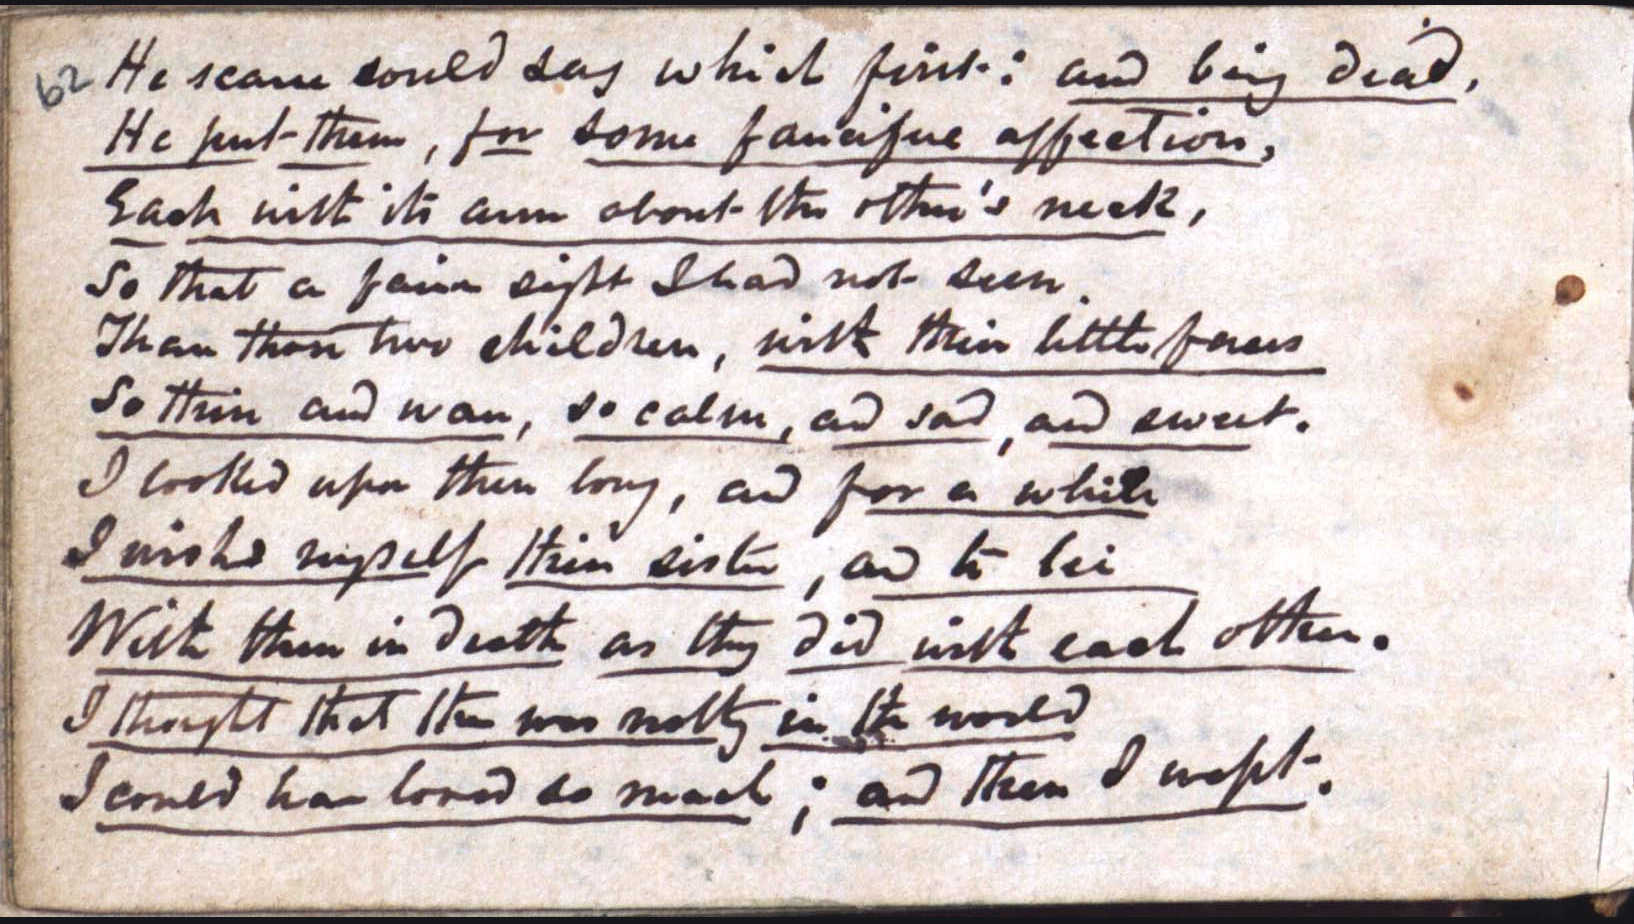 62 He scarce could say which first: and being dead,
He put them, for some fanciful affection,
Each with its arm about the other's neck,
So that a fairer sight I had not seen
Than those two children, with their little faces
So thin and wan, so calm, and sad, and sweet.
I looked upon them long, and for a while
I wished myself their sister, and to lie
With them in death as they did with each other.
I thought that there was nothing in the world
I could have loved so much; and then I wept.